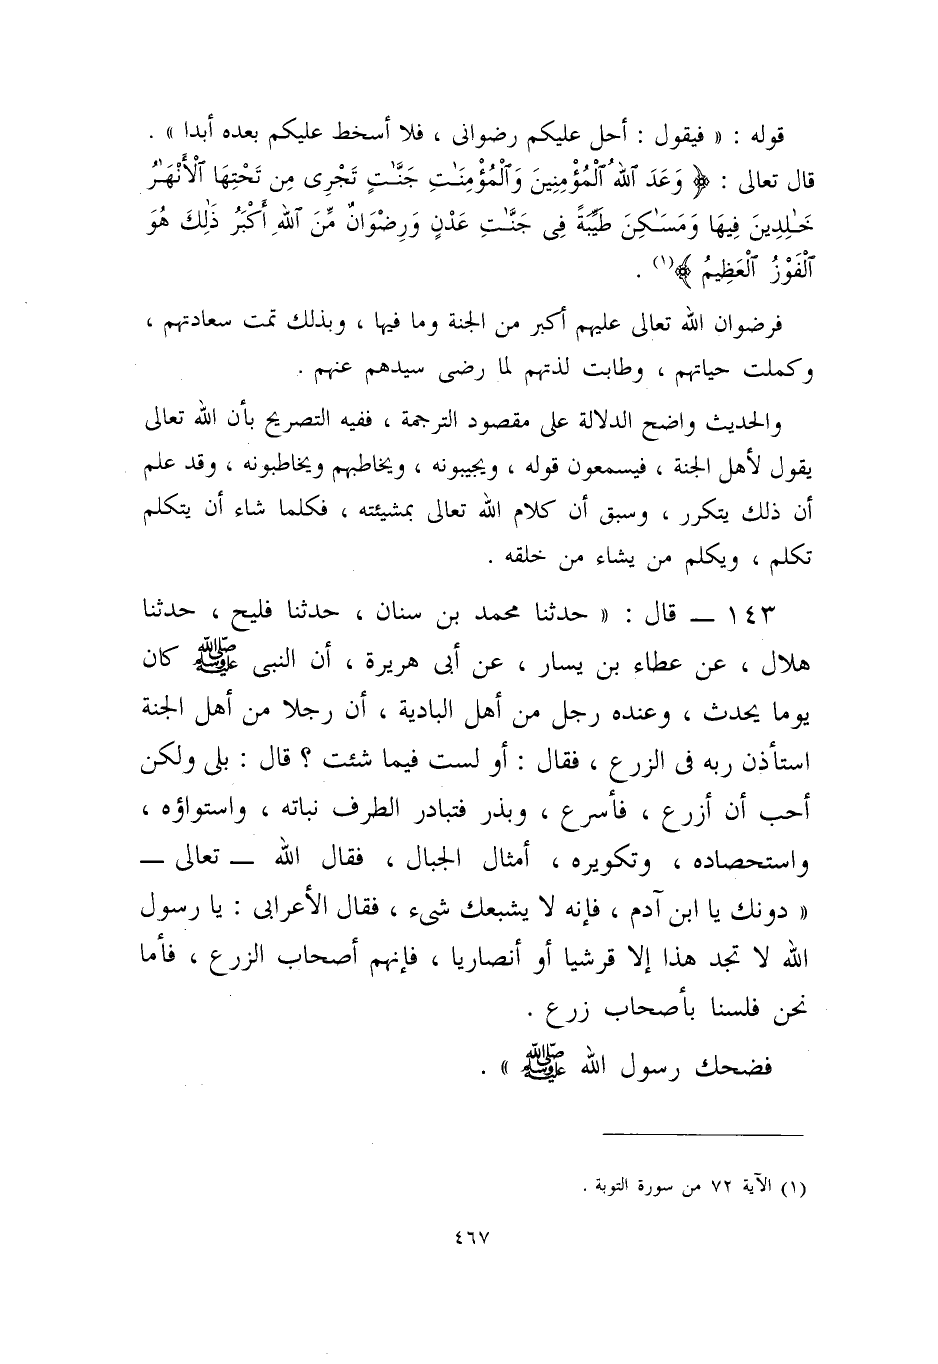 قوله : « فيقول : أحل عليكم رضوانى ، فلا أسخط عليكم بعده أبدا » .
قال تعالى : ﴿ وَعَدَ ٱللَّهُ ٱلْمُؤْمِنِينَ وَٱلْمُؤْمِنَـٰتِ جَنَّـٰتٍ تَجْرِى مِن تَحْتِهَا ٱلْأَنْهَـٰرُ
خَـٰلِدِينَ فِيهَا وَمَسَـٰكِنَ طَيِّبَةً فِى جَنَّـٰتِ عَدْنٍ وَرِضْوَانٌ مِّنَ ٱللَّهِ أَكْبَرُ ذَٰلِكَ هُوَ
ٱلْفَوْزُ ٱلْعَظِيمُ ﴾(١) .
فرضوان الله تعالى عليهم أكبر من الجنة وما فيها ، وبذلك تمت سعادتهم ،
وكملت حياتهم ، وطابت لذتهم لما رضى سيدهم عنهم .
والحديث واضح الدلالة على مقصود الترجمة ، ففيه التصريح بأن الله تعالى
يقول لأهل الجنة ، فيسمعون قوله ، ويجيبونه ، ويخاطبهم ويخاطبونه ، وقد علم
أن ذلك يتكرر ، وسبق أن كلام الله تعالى بمشيئته ، فكلما شاء أن يتكلم
تكلم ، ويكلم من يشاء من خلقه .
١٤٣ ــ قال : « حدثنا محمد بن سنان ، حدثنا فليح ، حدثنا
هلال ، عن عطاء بن يسار ، عن أبى هريرة ، أن النبى ﷺ كان
يوما يحدث ، وعنده رجل من أهل البادية ، أن رجلا من أهل الجنة
استأذن ربه فى الزرع ، فقال : أو لست فيما شئت ؟ قال : بلى ولكن
أحب أن أزرع ، فأسرع ، وبذر فتبادر الطرف نباته ، واستواؤه ،
واستحصاده ، وتكويره ، أمثال الجبال ، فقال الله ــ تعالى ــ
« دونك يا ابن آدم ، فإنه لا يشبعك شىء ، فقال الأعرابى : يا رسول
الله لا تجد هذا إلا قرشيا أو أنصاريا ، فإنهم أصحاب الزرع ، فأما
نحن فلسنا بأصحاب زرع .
فضحك رسول الله ﷺ » .
(١) الآية ٧٢ من سورة التوبة .
٤٦٧